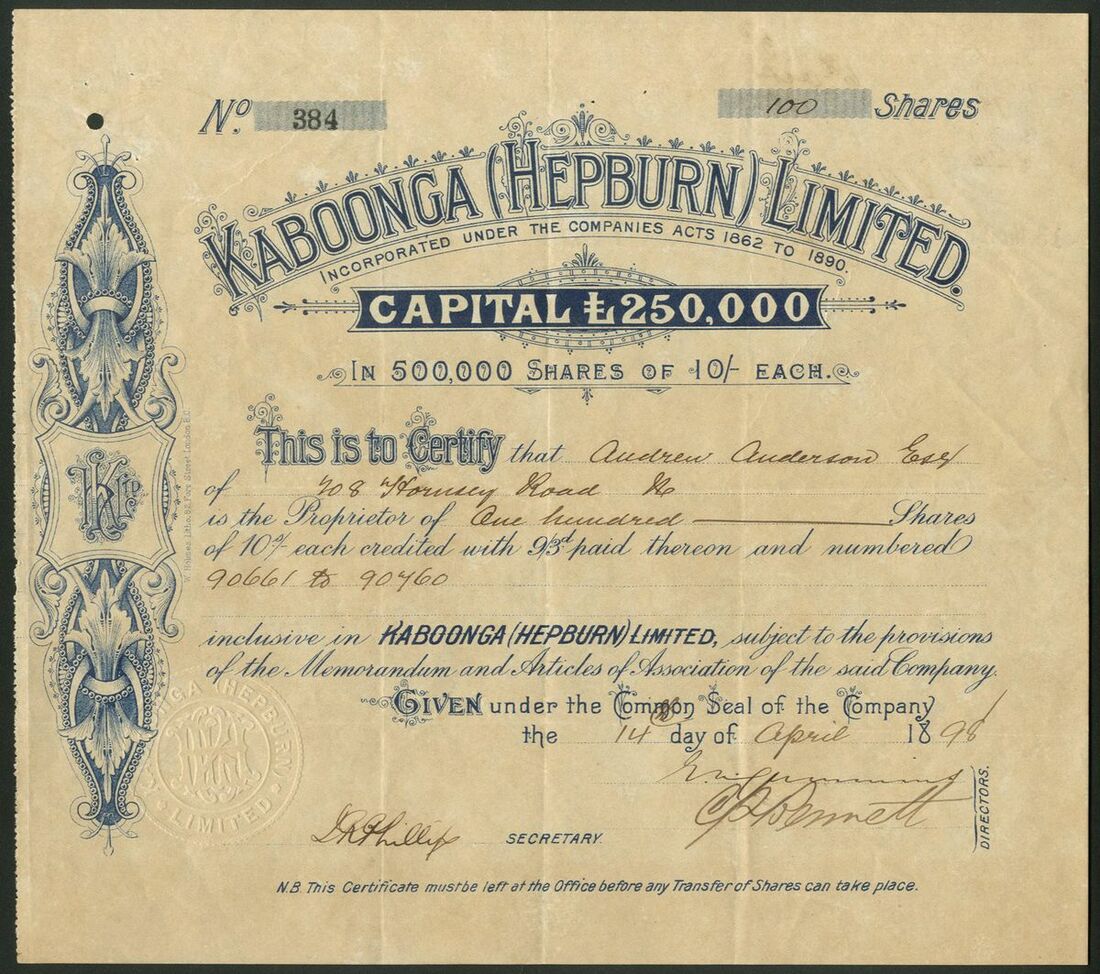 No. 384
100 Shares
KABOONGA (HEPBURN) LIMITED.
INCORPORATED UNDER THE COMPANIES ACTS 1862 TO 1890.
CAPITAL £250,000
IN 500,000 SHARES OF 10/- EACH.
This is to Certify that Andrew Anderson Esq
of 708 Hornsey Road N
is the Proprietor of One hundred Shares
of 10/- each credited with 9/3d paid thereon and numbered
90661 to 90760
inclusive in KABOONGA (HEPBURN) LIMITED, subject to the provisions
of the Memorandum and Articles of Association of the said Company.
GIVEN under the Common Seal of the Company
the 14th day of April 1898
C Bennett
DIRECTORS.
Phillips SECRETARY.
N.B. This Certificate must be left at the Office before any Transfer of Shares can take place.
K LTD
W. Holmes Litho. 82, Fore Street London E.C.
KABOONGA (HEPBURN) LIMITED